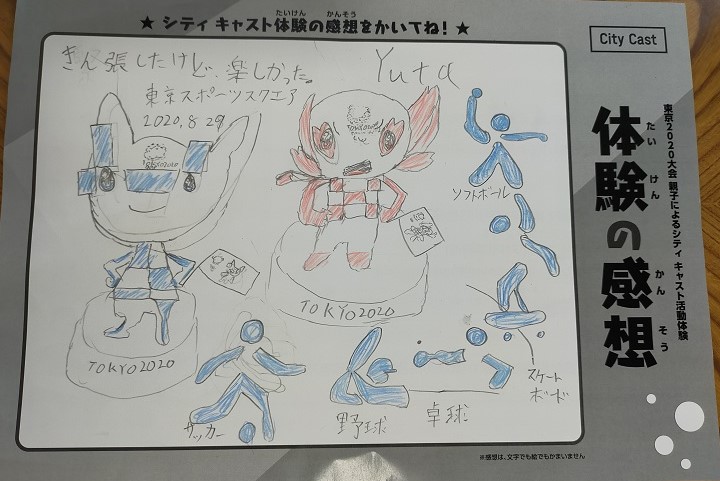 ★ シティ キャスト体験の感想をかいてね！ ★
たいけん かんそう
City Cast
きん張したけど、楽しかった。
Yuta
東京スポーツスクエア
2020.8.29
TOKYO2020
TOKYO2020
TOKYO2020
TOKYO2020
ソフトボール
スケートボード
サッカー
野球
卓球
東京2020大会 親子によるシティ キャスト活動体験
体験の感想
たい けん かん そう
※感想は、文字でも絵でもかまいません